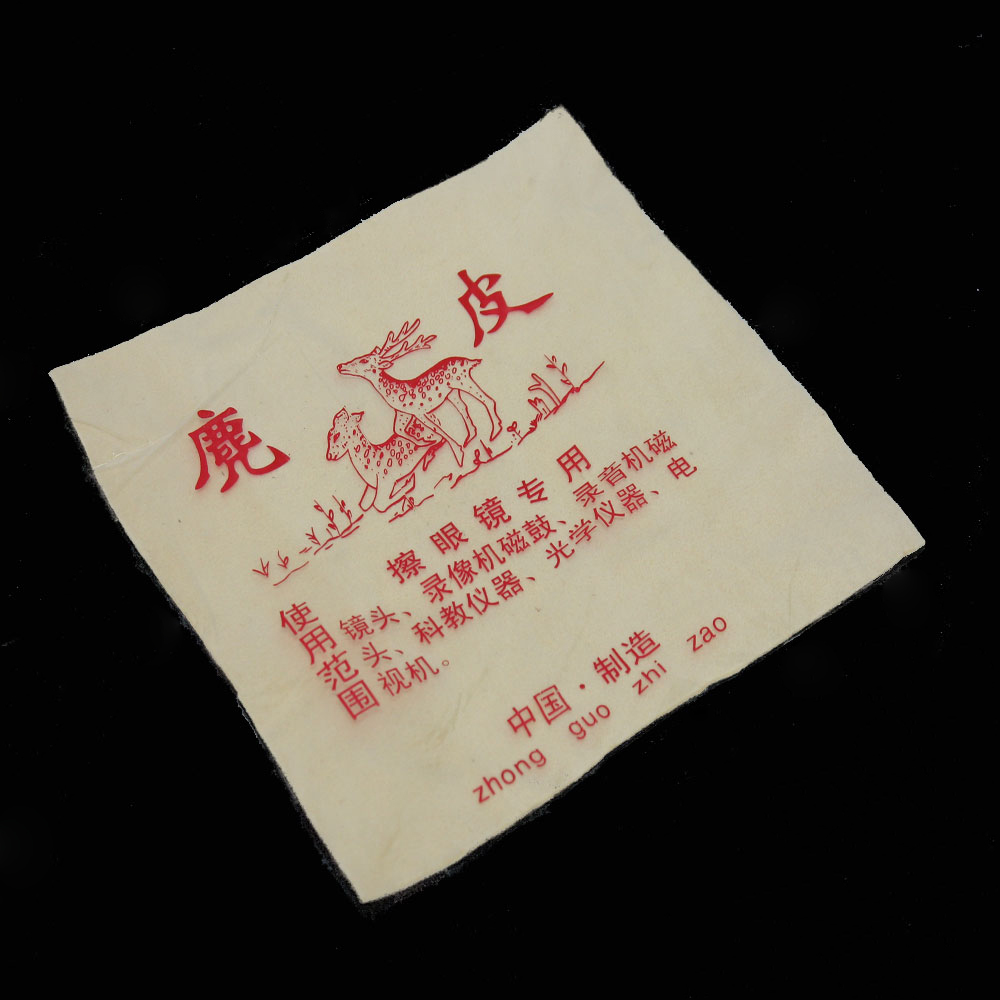 麂皮
擦眼镜专用
使用范围
镜头、录像机磁鼓、录音机磁
头、科教仪器、光学仪器、电
视机。
中国·制造
zhong guo zhi zao